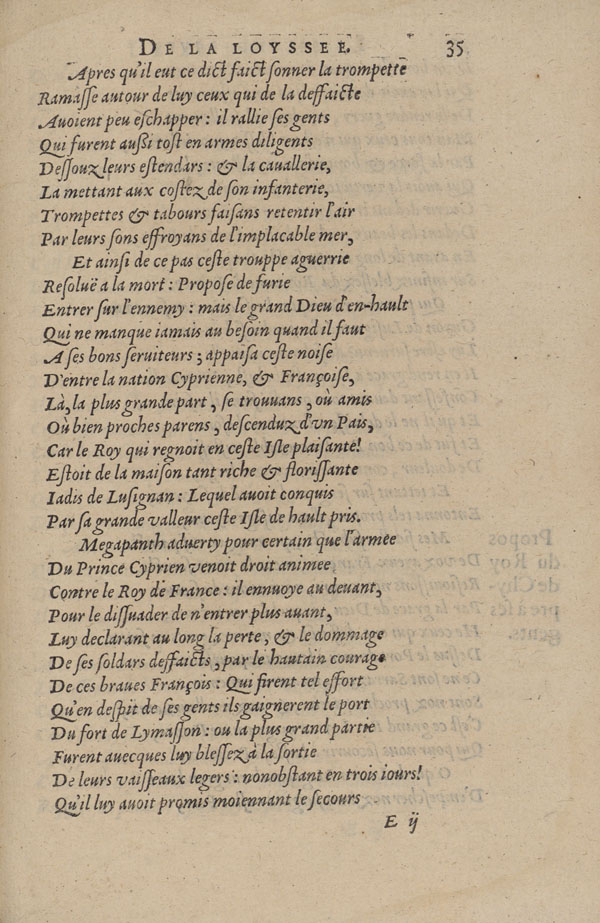 DE LA LOYSSEE. 35
Apres qu'il eut ce dict faict sonner la trompette
Ramasse autour de luy ceux qui de la deffaicte
Avoient peu eschapper : il rallie ses gents
Qui furent aussi tost en armes diligents
Dessouz leurs estendars : & la cauallerie,
La mettant aux costez de son infanterie,
Trompettes & tabours faisans retentir l'air
Par leurs sons effroyans de l'implacable mer,
Et ainsi de ce pas ceste trouppe aguerrie
Resoluë a la mort : Propose de furie
Entrer sur l'ennemy : mais le grand Dieu d'en-hault
Qui ne manque iamais au besoin quand il faut
A ses bons seruiteurs ; appaisa ceste noise
D'entre la nation Cyprienne, & Françoise,
Là, la plus grande part, se trouuans, où amis
Où bien proches parens, descenduz d'vn Pais,
Car le Roy qui regnoit en ceste Isle plaisante!
Estoit de la maison tant riche & florissante
Iadis de Lusignan : Lequel auoit conquis
Par sa grande valleur ceste Isle de hault pris.
Megapanth aduerty pour certain que l'armee
Du Prince Cyprien venoit droit animee
Contre le Roy de France : il ennuoye au deuant,
Pour le dissuader de n'entrer plus auant,
Luy declarant au long la perte, & le dommage
De ses soldars deffaicts, par le hautain courage
De ces braues François : Qui firent tel effort
Qu'en despit de ses gents ils gaignerent le port
Du fort de Lymasson : ou la plus grand partie
Furent auecques luy blessez à la sortie
De leurs vaisseaux legers : nonobstant en trois iours!
Qu'il luy auoit promis moiennant le secours
E ij
Propos
du Roy
de Chy-
pre à ses
gents.